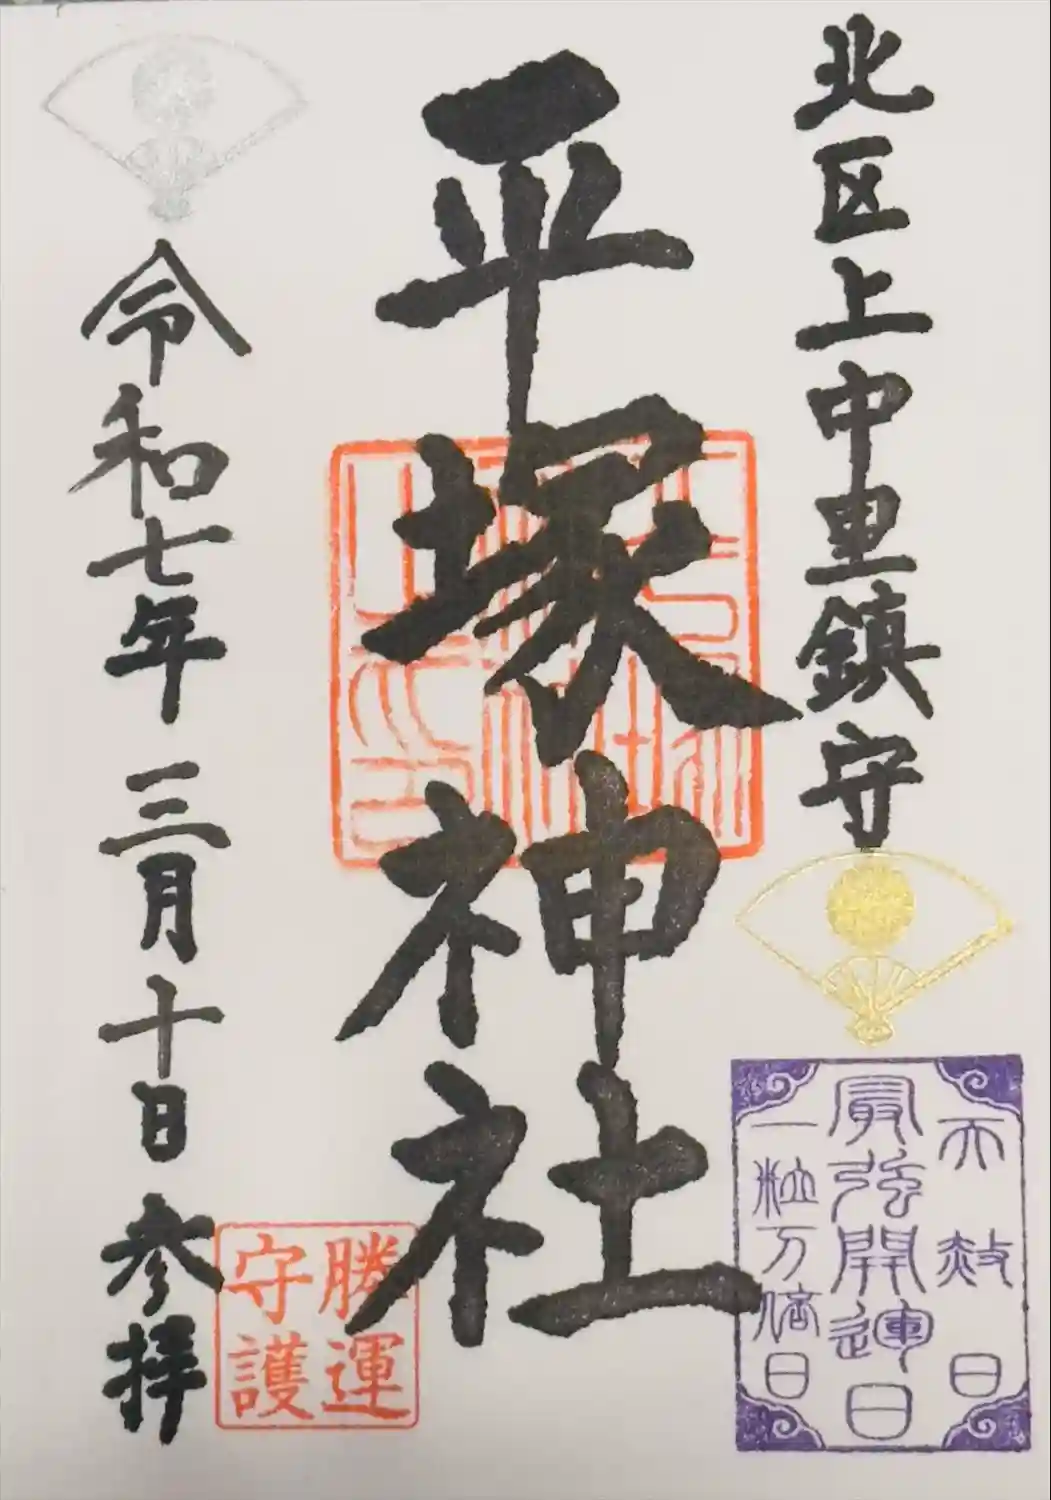 北区上中里鎮守
天赦日
最強開運日
一粒万倍日
平塚神社
勝運
守護
令和七年三月十日参拝